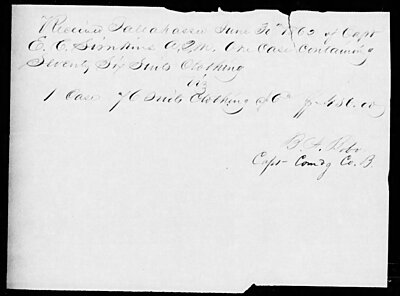 Received Tallahassee June 30th 1862 of Capt
E. C. Simkins A.Q.M. One Case Containing
Seventy Six Suits Clothing
Viz
1 Case 76 Suits Clothing
B. F.
Capt Comdg Co. B.